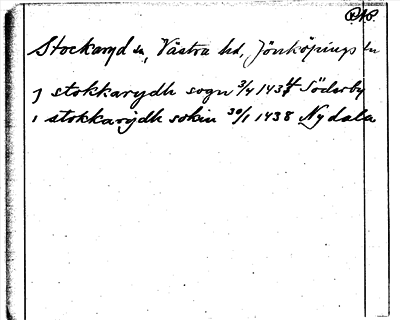 Stockaryd sn, Västra hd, Jönköpings ln
J stokkarydh sogn 3/4 1434 Söderby
i stokkarydh sokin 30/1 1438 Nydala